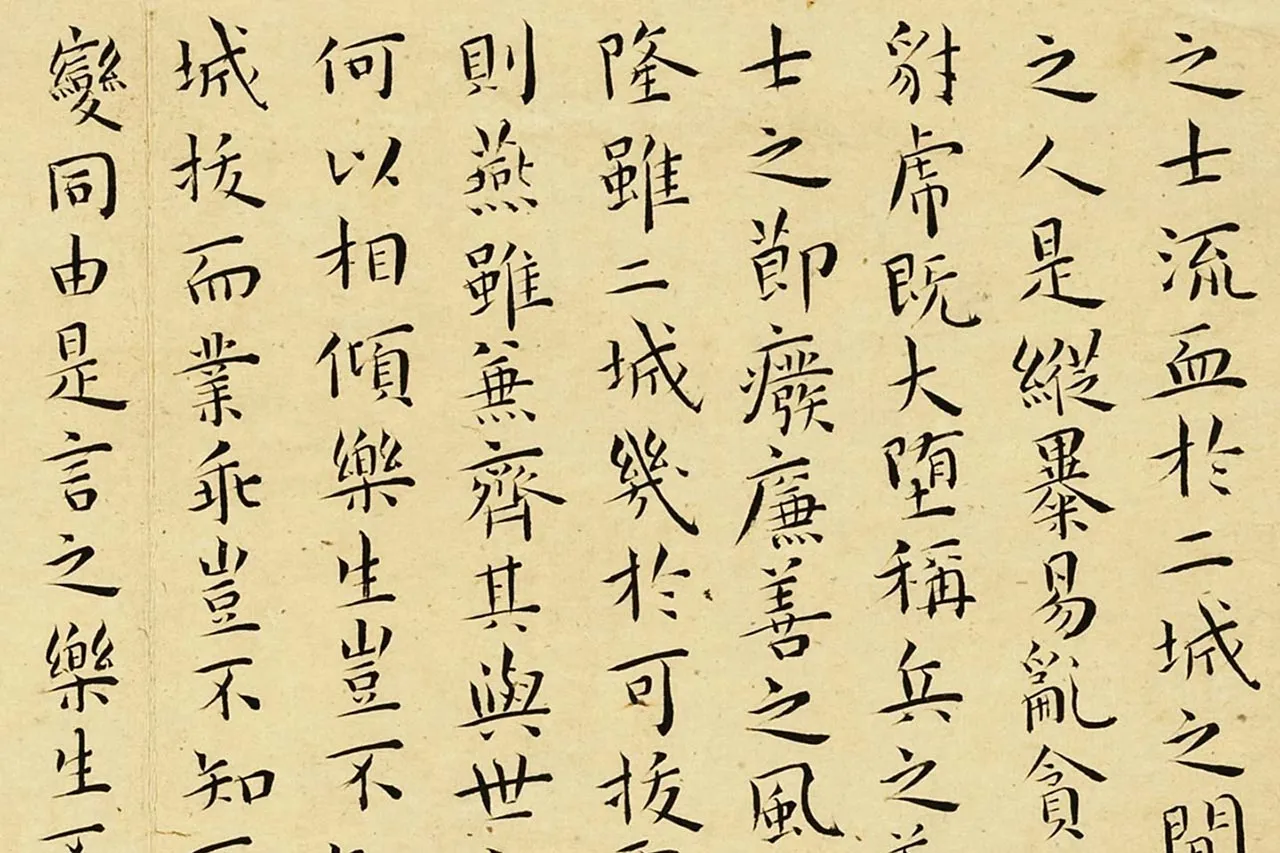 之士流血於二城之間
之人是縱暴易亂貪
豺虎既大堕稱兵之
士之節癈廉善之風
隆雖二城幾於可拔
則燕雖兼齊其與世
何以相傾樂生豈不
城拔而業乖豈不知
變同由是言之樂生不